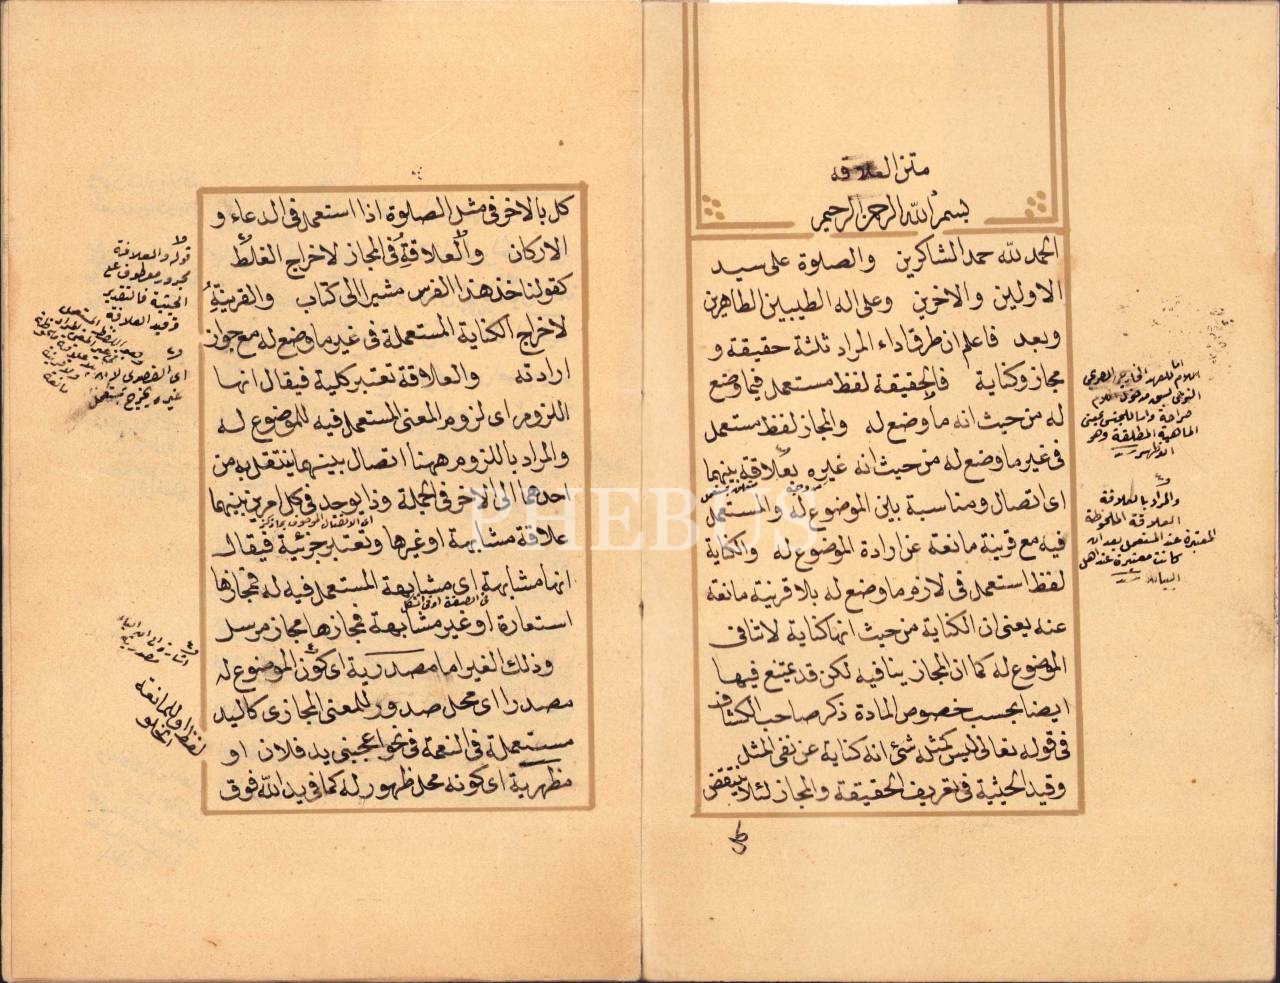 متن العلاقه
بسم الله الرحمن الرحيم
الحمد لله حمد الشاكرين والصلوة على سيد
الاولين والاخرين وعلى اله الطيبين الطاهرين
وبعد فاعلم ان طرق اداء المراد ثلثة حقيقة و
مجاز وكناية فالحقيقة لفظ مستعمل فيما وضع
له من حيث انه ما وضع له والمجاز لفظ مستعمل
فى غير ما وضع له من حيث انه غيره بعلاقة بينهما
اى اتصال ومناسبة بين الموضوع له والمستعمل
فيه مع قرينة مانعة عن ارادة الموضوع له والكناية
لفظ استعمل فى لازم ما وضع له بلا قرينة مانعة
عنه يعنى ان الكناية من حيث انها كناية لا تنافى
الموضوع له كما ان المجاز ينافيه لكن قد يمتنع فيها
ايضا بحسب خصوص المادة ذكر صاحب الكشاف
فى قوله تعالى ليس كمثله شئ انه كناية عن نفى المثل
وقيد الحيثية فى تعريف الحقيقة والمجاز لئلا ينتقض
كل
والمراد بالعلاقة
العلاقة الملحوظة
المعتبرة عند المستعمل بعد ان
كانت معتبرة عند اهل
البيان
كل بالاخر فى مثل الصلوة اذا استعمل فى الدعاء و
الاركان والعلاقة فى المجاز لاخراج الغلط
كقولنا خذ هذا الفرس مشيرا الى كتاب والقرينة
لاخراج الكناية المستعملة فى غير ما وضع له مع جواز
ارادته والعلاقة تعتبر كلية فيقال انها
اللزوم اى لزوم المعنى المستعمل فيه للموضوع له
والمراد باللزوم ههنا اتصال بينهما ينتقل به من
احدهما الى الاخر فى الجملة وذا يوجد فى كل امرين بينهما
علاقة مشابهة او غيرها وتعتبر جزئية فيقال
انها مشابهة اى مشابهة المستعمل فيه له فمجازها
فى الصفة او فى الشكل
استعارة او غير مشابهة فمجازها مجاز مرسل
وذلك الغير اما مصدرية اى كون الموضوع له
مصدرا اى محل صدور للمعنى المجازى كاليد
مستعملة فى النعمة فى نحو اعجبنى يد فلان او
مظهرية اى كونه محل ظهور له كما فى يد الله فوق
قوله والعلاقة
مجرور معطوف على
الحيثية فالتقدير
وقيد العلاقة
لفظ او للمانعة
الخلو
PHEBUS